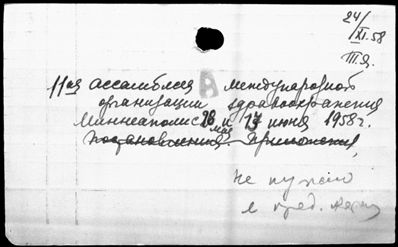 24/XI.58
III я.
11ая ассамблея международной
организации здравоохранения
Миннеаполис 28 мая и 13 июня 1958 г.
Постановления
не нужно